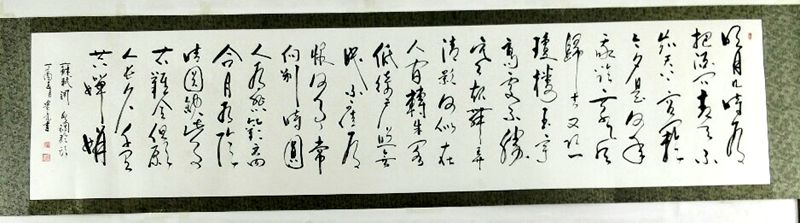 明月几時有
把酒问青天不
知天上宫阙
今夕是何年
我欲乘风
歸去又恐
瓊樓玉宇
高處不勝
寒起舞弄
清影何似在
人间轉朱阁
低绮户照無
眠不應有
恨何事常
向别時圓
人有悲歡离
合月有陰
晴圆缺此事
古難全但願
人长久千里
共嬋娟
蘇軾词
丁酉